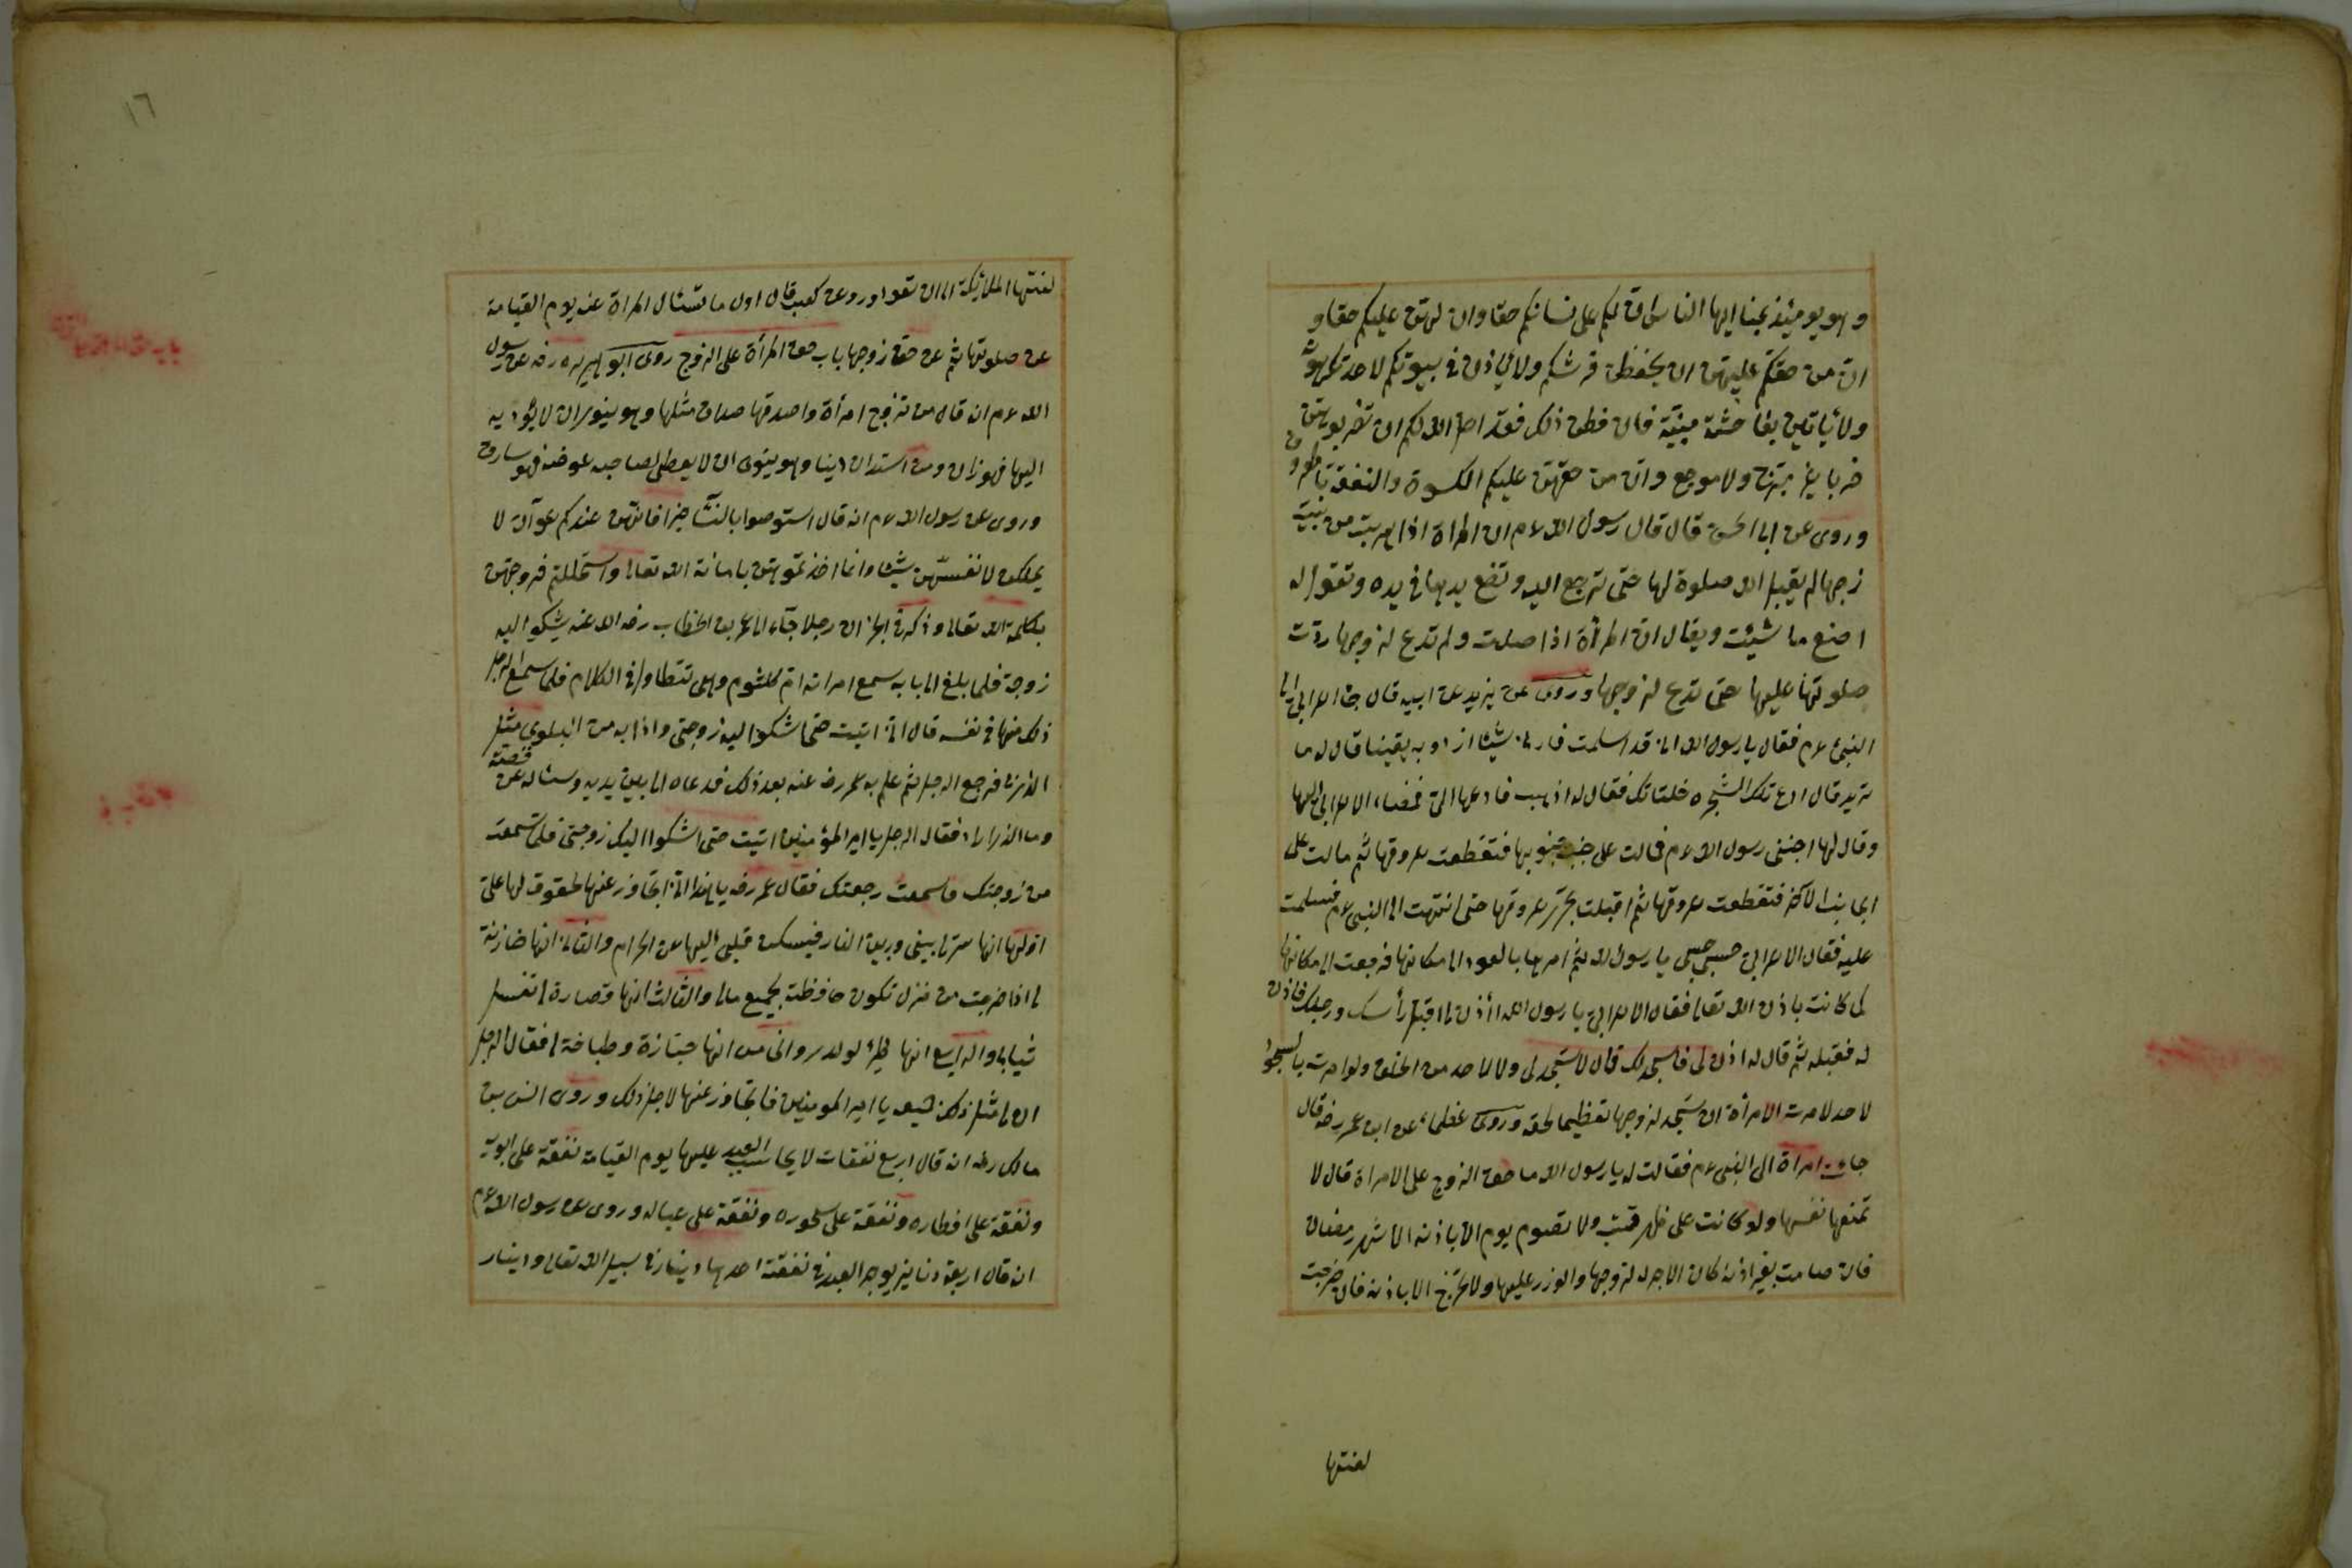 وهو يومئذ بمنا ايها الناس ان لكم على نسائكم حقا وان لهن عليكم حقا و
ان من حقكم عليهن ان يحفظن فرشكم ولا يأذن في بيوتكم لاحد تكرهونه
ولا يأتين بفاحشة مبينة فان فعلن ذلك فقد احل الله لكم ان تضربوهن
ضربا غير مبرح ولا موجع وان من حقهن عليكم الكسوة والنفقة بالمعروف
وروى عن ابى الحسن قال قال رسول الله عم ان المراة اذا هربت من بيت
زوجها لم يقبل الله صلوة لها حتى ترجع اليه وتضع يدها فى يده وتقول له
اصنع ما شيئت ويقال ان المرأة اذا صلت ولم تدع لزوجها ردت
صلوتها عليها حتى تدع لزوجها وروى عن يزيد عن ابيه قال جاء اعرابى الى
النبى عم فقال يا رسول الله انى قد اسلمت فارنى شيئا ازدد به يقينا قال له ما
تريد قال ادع تلك الشجرة فقال له اذهب فادعها الى فمضاء الاعرابى اليها
وقال لها اجيبى رسول الله عم فمالت على جنوبها فتقطعت عروقها ثم مالت على
الجانب الآخر فتقطعت عروقها ثم اقبلت تجر عروقها حتى انتهت الى النبى عم فسلمت
عليه فقال الاعرابى حسبى حسبى يا رسول الله ثم امرها بالعود الى مكانها فرجعت الى مكانها
كما كانت باذن الله تعالى فقال الاعرابى يا رسول الله ائذن لى اقبل رأسك ورجلك فاذن
له فقبله ثم قال له اذن لى فاسجد لك قال لا تسجد لى ولا لاحد من الخلق ولو امرت بالسجود
لاحد لامرت الامرأة ان تسجد لزوجها تعظيما لحقه وروى عطاء عن ابن عمر رضه قال
جاءت امراة الى النبى عم فقالت له يا رسول الله ما حق الزوج على الامراة قال لا
تمنعها نفسها ولو كانت على ظهر قتب ولا تصوم يوم الا باذنه الا شهر رمضان
فان صامت بغير اذنه كان الاجر له لزوجها والوزر عليها ولا تخرج الا باذنه فان خرجت
لعنتها
١٦
لعنتها الملائكة الى ان تعود وروى عن كعب قال اول ما تسئال المراة عنه يوم القيامة
عن صلوتها ثم عن حق زوجها باب حق المرأة على الزوج روى ابو هريره رضه عن رسول
الله عم انه قال من تزوج امرأة واصدقها صداق مثلها وهو ينوى ان لا يؤديه
اليها فهو زان ومن استدان دينا وهو ينوى ان لا يعطى لصاحبه عوضه فهو سارق
وروى عن رسول الله عم انه قال استوصوا بالنساء خيرا فانهن عندكم عوان لا
يملكن لانفسهن شيئا وانما اخذتموهن بامانة الله تعالى واستحللتم فروجهن
بكلمة الله تعالى وذكر فى الخبر ان رجلا جاء الى عمر بن الخطاب رضه الله عنه يشكو اليه
زوجة فلما بلغ الى بابه سمع امراته ام كلثوم وهى تتطاول فى الكلام فلما سمع الرجل
ذلك منها فى نفسه قال انى اتيت حتى اشكوا اليه زوجتى واذا به من البلوى مثل
الذى بى فرجع الرجل ثم علم به عمر رضه عنه بعد ذلك فدعاه الى بين يديه وسئاله عن قصته
وما الذى اراد فقال الرجل يا امير المؤمنين اتيت حتى اشكوا اليك زوجتى فلما سمعت
من زوجتك ما سمعت رجعتك فقال عمر رضه يا هذا انى اتجاوز عنها لحقوق لها على
اولها انها ستر بينى وبين النار فيسكن قلبى اليها عن الحرام والثانى انها خازنة
لى اذا خرجت من منزلى تكون حافظة لجميع مالى والثالث انها قصارة لى تغسل
ثيابى والرابع انها ظئر لولدى والخامس انها خبازة وطباخة لى فقال الرجل
ان لى مثل ذلك يا امير المومنين فاتجاوز عنها لاجل ذلك وروى انس بن
مالك رضه انه قال اربع نفقات لا يحاسب العبد عليها يوم القيامة نفقة على ابويه
ونفقة على افطاره ونفقة على سحوره ونفقة على عياله وروى عن رسول الله عم
انه قال اربعة دنانير يوجر العبد فى نفقته احدها دينار فى سبيل الله تعالى ودينار